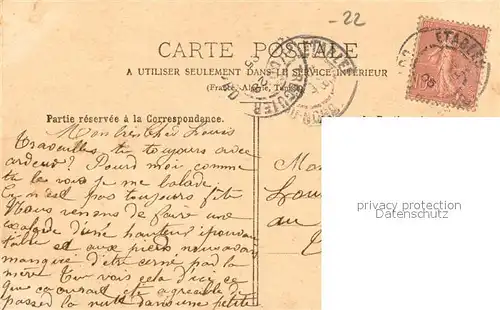 -22
CARTE POSTALE
A UTILISER SEULEMENT DANS LE SERVICE INTÉRIEUR
(France, Algérie, Tunisie)
ETABLES
Partie réservée à la Correspondance.
Mon très cher Louis
travailles tu toujours avec
ardeur? Pourd moi comme
tu les vois je me balade.
Ça n'est pas toujours fête
Nous venons de faire une
escalade d'une hauteur épouvan
table et aux pieds nous avons
manqué d'être cerné par la
mère Tu vois cela d'ici ce
que ça aurait été agréable de
passer la nuit dans une petite
Mon
Lou
au
privacy protection
Datenschutz